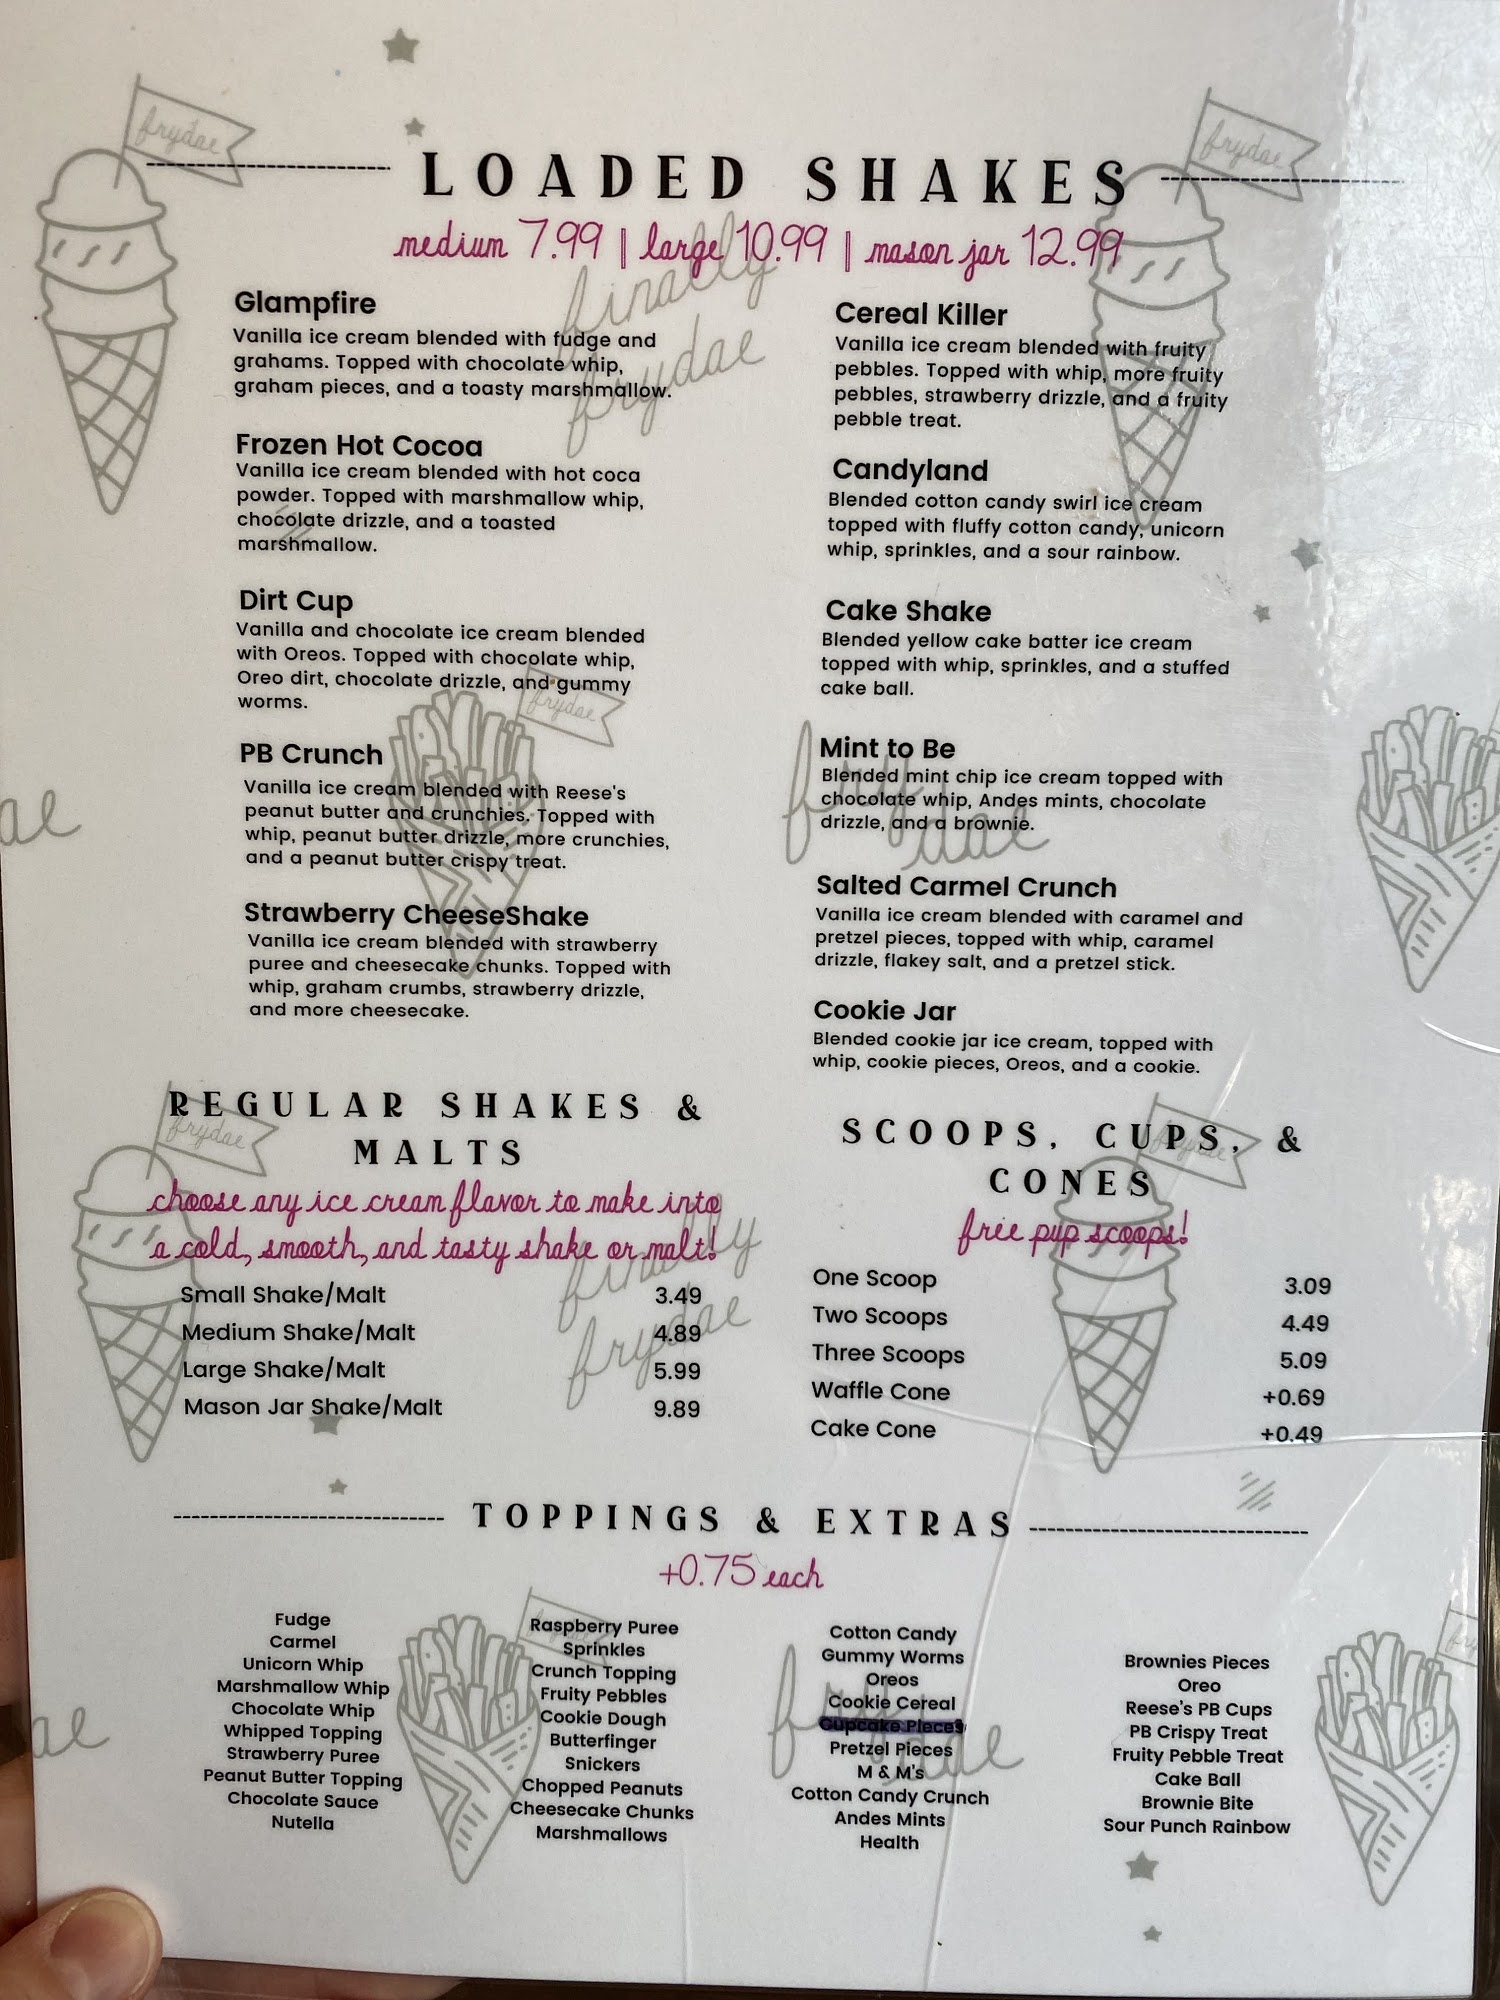 LOADED SHAKES
medium 7.99 | large 10.99 | mason jar 12.99
Glampfire
Vanilla ice cream blended with fudge and
grahams. Topped with chocolate whip,
graham pieces, and a toasty marshmallow.
Frozen Hot Cocoa
Vanilla ice cream blended with hot coca
powder. Topped with marshmallow whip,
chocolate drizzle, and a toasted
marshmallow.
Dirt Cup
Vanilla and chocolate ice cream blended
with Oreos. Topped with chocolate whip,
Oreo dirt, chocolate drizzle, and gummy
worms.
PB Crunch
Vanilla ice cream blended with Reese's
peanut butter and crunchies. Topped with
whip, peanut butter drizzle, more crunchies,
and a peanut butter crispy treat.
Strawberry CheeseShake
Vanilla ice cream blended with strawberry
puree and cheesecake chunks. Topped with
whip, graham crumbs, strawberry drizzle,
and more cheesecake.
Cereal Killer
Vanilla ice cream blended with fruity
pebbles. Topped with whip, more fruity
pebbles, strawberry drizzle, and a fruity
pebble treat.
Candyland
Blended cotton candy swirl ice cream
topped with fluffy cotton candy, unicorn
whip, sprinkles, and a sour rainbow.
Cake Shake
Blended yellow cake batter ice cream
topped with whip, sprinkles, and a stuffed
cake ball.
Mint to Be
Blended mint chip ice cream topped with
chocolate whip, Andes mints, chocolate
drizzle, and a brownie.
Salted Carmel Crunch
Vanilla ice cream blended with caramel and
pretzel pieces, topped with whip, caramel
drizzle, flakey salt, and a pretzel stick.
Cookie Jar
Blended cookie jar ice cream, topped with
whip, cookie pieces, Oreos, and a cookie.
REGULAR SHAKES &
MALTS
choose any ice cream flavor to make into
a cold, smooth, and tasty shake or malt!
Small Shake/Malt 3.49
Medium Shake/Malt 4.89
Large Shake/Malt 5.99
Mason Jar Shake/Malt 9.89
SCOOPS, CUPS, &
CONES
free pup scoops!
One Scoop 3.09
Two Scoops 4.49
Three Scoops 5.09
Waffle Cone +0.69
Cake Cone +0.49
TOPPINGS & EXTRAS
+0.75 each
Fudge
Carmel
Unicorn Whip
Marshmallow Whip
Chocolate Whip
Whipped Topping
Strawberry Puree
Peanut Butter Topping
Chocolate Sauce
Nutella
Raspberry Puree
Sprinkles
Crunch Topping
Fruity Pebbles
Cookie Dough
Butterfinger
Snickers
Chopped Peanuts
Cheesecake Chunks
Marshmallows
Cotton Candy
Gummy Worms
Oreos
Cookie Cereal
Cupcake Pieces
Pretzel Pieces
M & M's
Cotton Candy Crunch
Andes Mints
Health
Brownies Pieces
Oreo
Reese's PB Cups
PB Crispy Treat
Fruity Pebble Treat
Cake Ball
Brownie Bite
Sour Punch Rainbow
frydae
frydae
finally
frydae
frydae
frydae
frydae
frydae
finally
frydae
frydae